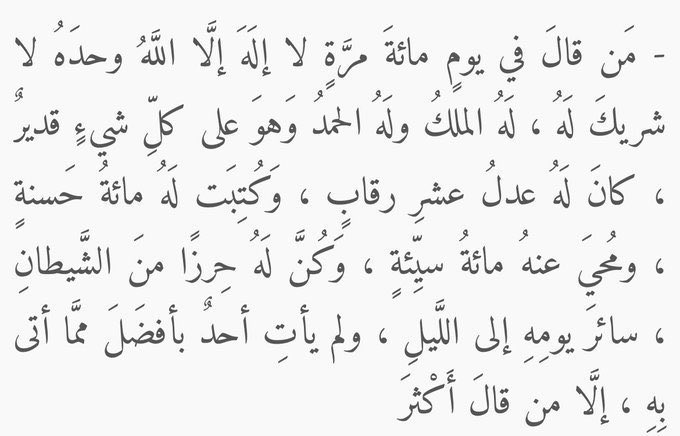 - مَن قالَ في يومٍ مائةَ مرَّةٍ لا إلَهَ إلَّا اللَّهُ وحدَهُ لا
شريكَ لَهُ ، لَهُ الملكُ ولَهُ الحمدُ وَهوَ على كلِّ شيءٍ قديرٌ
، كانَ لَهُ عدلُ عشرِ رقابٍ ، وَكُتِبَت لَهُ مائةُ حَسنةٍ
، ومُحيَ عنهُ مائةُ سيِّئةٍ ، وَكُنَّ لَهُ حِرزًا منَ الشَّيطانِ
، سائرَ يومِهِ إلى اللَّيلِ ، ولم يأتِ أحدٌ بأفضَلَ ممَّا أتى
بِهِ ، إلَّا من قالَ أَكْثرَ